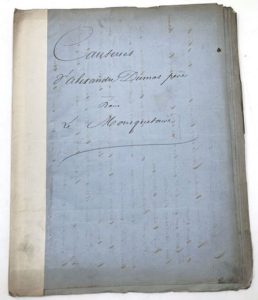 Causeries
d'Alexandre Dumas père
Dans
Le Mousquetaire